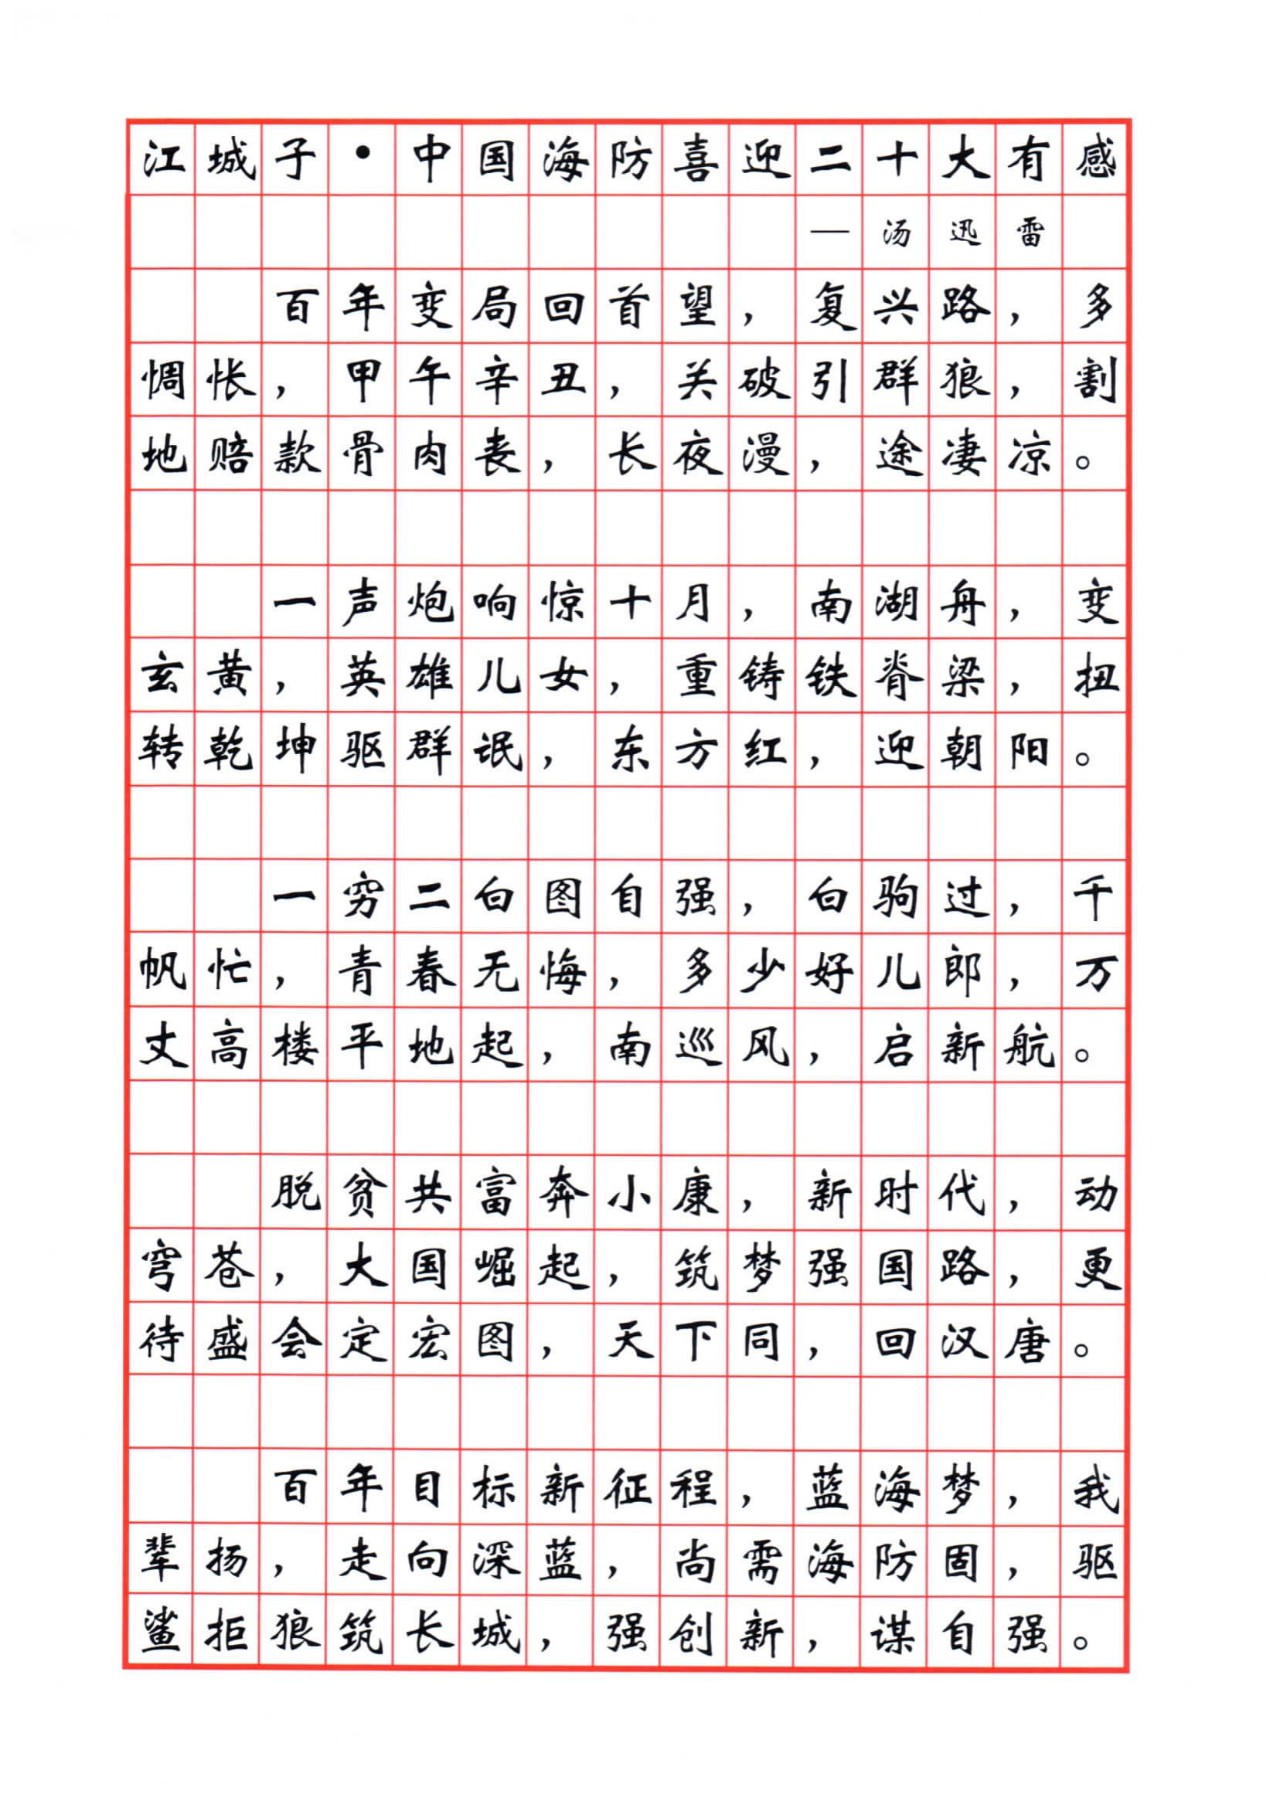 江城子·中国海防喜迎二十大有感
—汤迅雷
百年变局回首望，复兴路，多
惆怅，甲午辛丑，关破引群狼，割
地赔款骨肉丧，长夜漫，途凄凉。
一声炮响惊十月，南湖舟，变
玄黄，英雄儿女，重铸铁脊梁，扭
转乾坤驱群氓，东方红，迎朝阳。
一穷二白图自强，白驹过，千
帆忙，青春无悔，多少好儿郎，万
丈高楼平地起，南巡风，启新航。
脱贫共富奔小康，新时代，动
穹苍，大国崛起，筑梦强国路，更
待盛会定宏图，天下同，回汉唐。
百年目标新征程，蓝海梦，我
辈扬，走向深蓝，尚需海防固，驱
鲨拒狼筑长城，强创新，谋自强。